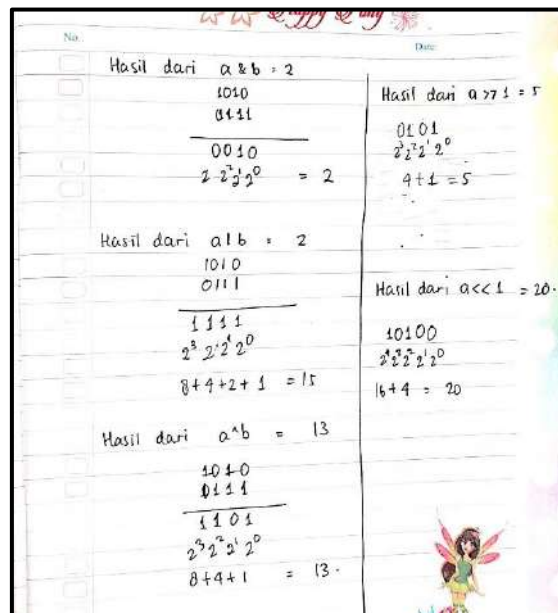 Happy Day
No.
Date:
Hasil dari a & b = 2
1010
0111
0010
2 2² 2¹ 2⁰ = 2
Hasil dari a|b = 2
1010
0111
1111
2³ 2² 2¹ 2⁰
8+4+2+1 = 15
Hasil dari a^b = 13
1010
0111
1101
2³ 2² 2¹ 2⁰
8+4+1 = 13.
Hasil dari a >> 1 = 5
0101
2³ 2² 2¹ 2⁰
4+1 = 5
Hasil dari a << 1 = 20.
10100
2⁴ 2³ 2² 2¹ 2⁰
16+4 = 20